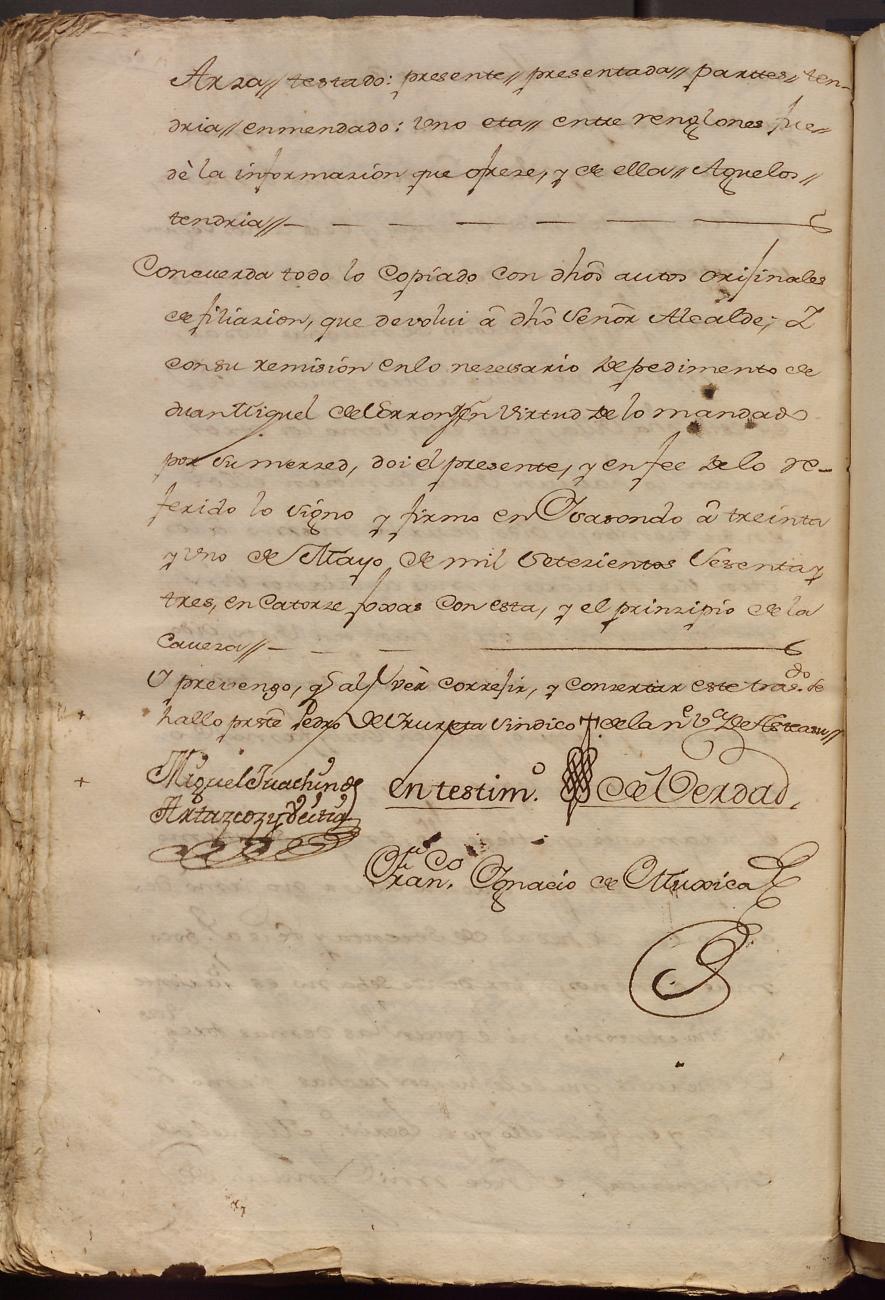 Arza// testado: presente// presentada// parttes// ten-
dria// enmendado: Uno eta// entre renglones fue//
dè la informazion que ofreze, y de ella// Aquelos//
tendria//
Concuerda todo lo Copiado con dhôs autos orijinales
de filiazion, que devolui â dhô Señor Alcalde; I
con su remision en lo nezesario De pedimento de
Juan Miguel de en Virtud de lo mandado
por su merzed, doi el presente, y en fee de lo re-
ferido lo signo y firmo en Ydiasondo â treinta
y Uno de Mayo, de mil Setezientos Sesenta y
tres, en Catorze foxas con esta, y el prinzipio de la
Caveza//
Y prevengo, q̃ al ver correjir, y conzertar este tras.do se
hallo prste Pedro de Yrureta Sindico de la n.e v.a De Asteasu//
Miguel Juachin de
Artazcoz y
en testim.o de Verdad,
Fran.co Ygnacio de Muxica